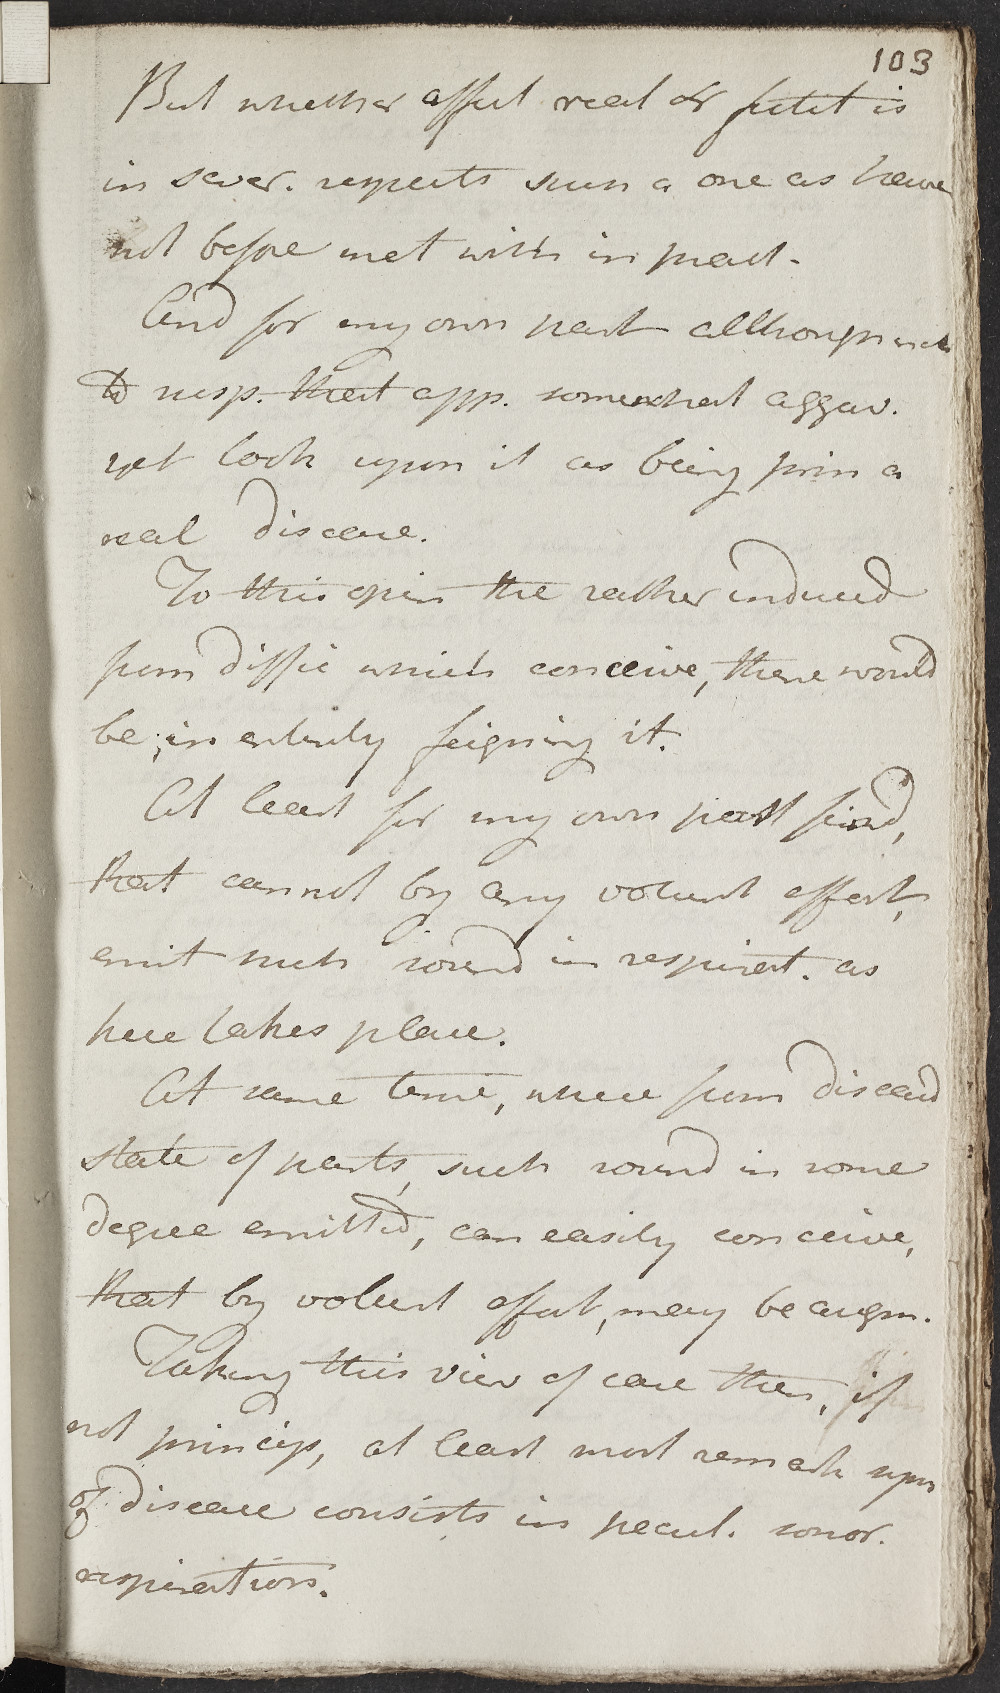 103
But whether affect real or fictit is
in sever. respects such a one as have
not before met with in pract.
And for my own part although with
resp. that app. somewhat aggrav.
yet look upon it as being from a
real disease.
To this opin the rather induced
from diffic which conceive, there would
be, in entirely feigning it.
At least for my own part find,
that cannot by any volunt effort,
emit such sound in respirat. as
here takes place.
At same time, where from diseased
state of parts, such sound in some
degree emitted, can easily conceive,
that by volunt effort, may be augm.
Taking this view of case then, if
not princip, at least most remark sym
of disease consists in pecul. sonor.
respiration.